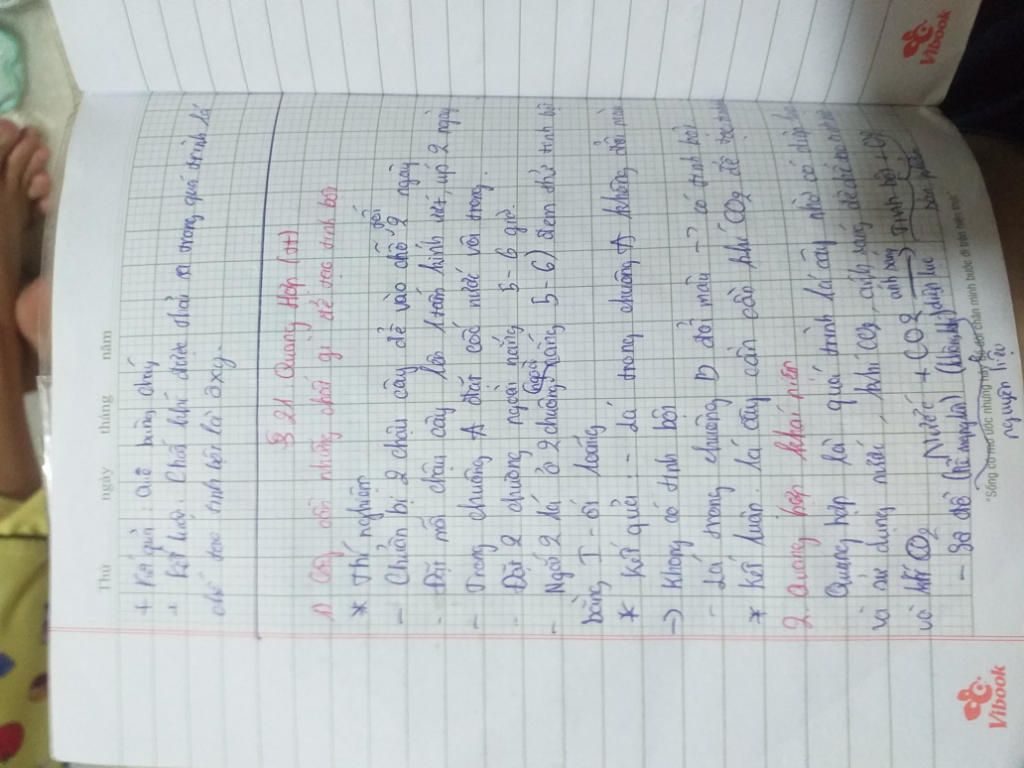 Thứ ngày tháng năm
+ Kết quả: que bùng cháy
+ Kết luận: Chất khí được thải ra trong quá trình lá
chế tạo tinh bột là ôxy.
B 21 Quang Hợp (tt)
1) Cây cần những chất gì để tạo tinh bột
* Thí nghiệm
- Chuẩn bị 2 chậu cây để vào chỗ tối 2 ngày
- Đặt mỗi chậu cây lên 1 tấm kính ướt, úp 2
- Trong chuông A đặt cốc nước vôi trong.
- Đặt 2 chuông ngoài nắng 5-6 giờ.
- Ngắt 2 lá ở 2 chuông ngoài nắng 5-6) đem thử tinh bột
bằng I-ốt loãng
* Kết quả: - Lá trong chuông A không đổi màu
-> Không có tinh bột
- Lá trong chuông B đổi màu -> có tinh bột
* Kết luận: lá cây cần có khí CO2 để
2. Quang hợp khái niệm
Quang hợp là quá trình lá cây nhờ có diệp lục
và sử dụng nước, khí CO2, ánh sáng để
và khí CO2
- Sơ đồ Nước + CO2 ánh sáng -> Tinh bột + O2
diệp lục
nguyên liệu sản phẩm
"Sống có mơ ước những hãy để đôi chân mình bước đi trên hiện thực"
Vibook
Vibook